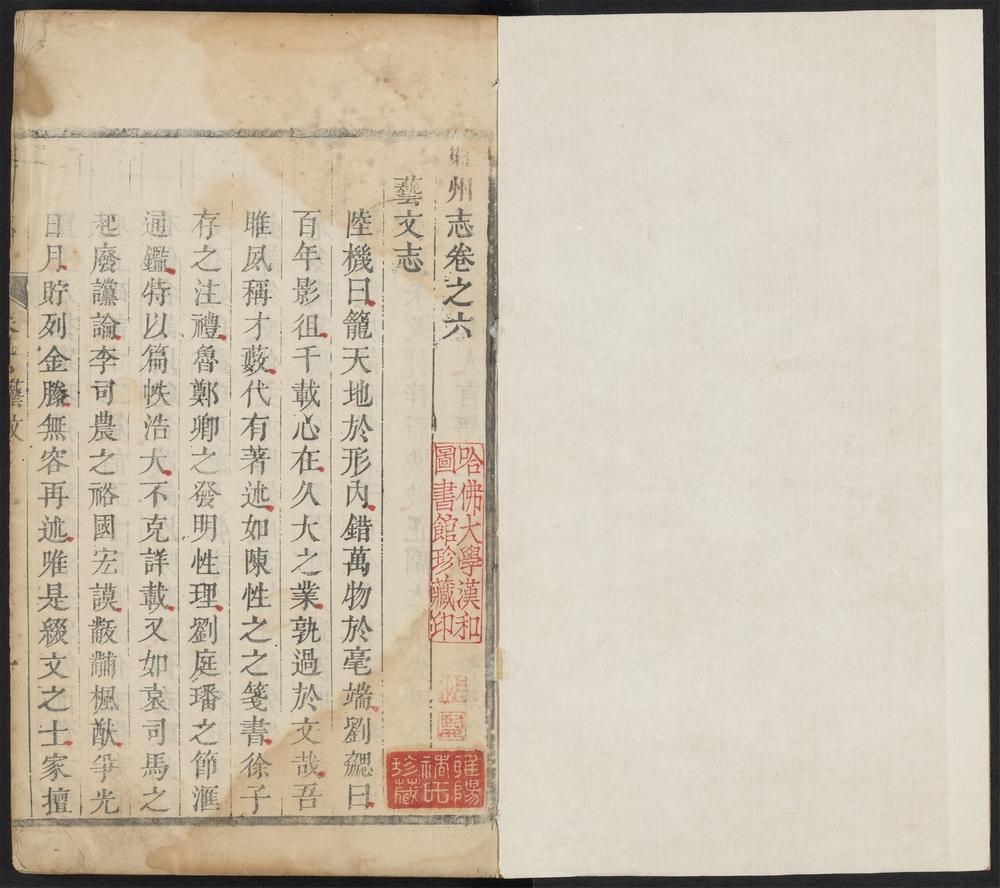 睢州志卷之六
藝文志
陸機曰籠天地於形內錯萬物於毫端劉勰曰
百年影徂千載心在久大之業孰過於文哉吾
睢夙稱才藪代有著述如陳性之之箋書徐子
存之注禮魯鄭卿之發明性理劉庭璠之節滙
通鑑特以篇帙浩大不克詳載又如袁司馬之
起廢讜論李司農之裕國宏謨黻黼楓猷爭光
日月貯列金縢無容再述唯是綴文之士家擅
藝文
哈佛大學漢和
圖書館珍藏印
睢陽
褚氏
珍藏